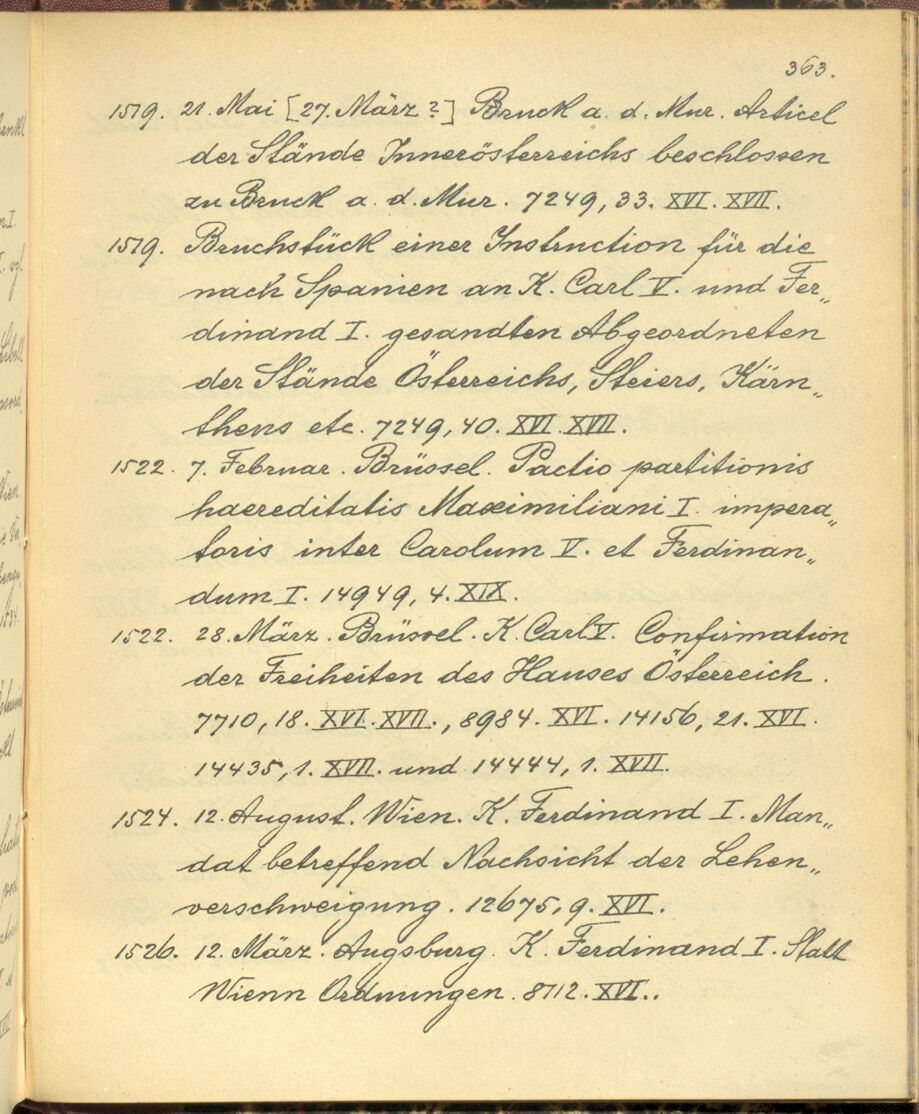 363.
1519. 21. Mai [27. März ?] Bruck a. d. Mur. Articel
der Stände Innerösterreichs beschlossen
zu Bruck a. d. Mur. 7249, 33. XVI. XVII.
1519. Bruchstück einer Instruction für die
nach Spanien an K. Carl V. und Fer„
dinand I. gesandten Abgeordneten
der Stände Österreichs, Steiers, Kärn„
thens etc. 7249, 40. XVI. XVII.
1522. 7. Februar. Brüssel. Pactio partitionis
haereditatis Maximiliani I. impera„
toris inter Carolum V. et Ferdinan„
dum I. 14949, 4. XIX.
1522. 28. März. Brüssel. K. Carl V. Confirmation
der Freiheiten des Hauses Österreich.
7710, 18. XVI. XVII., 8984. XVI. 14156, 21. XVI.
14435, 1. XVII. und 14444, 1. XVII.
1524. 12. August. Wien. K. Ferdinand I. Man„
dat betreffend Nachsicht der Lehen„
verschweigung. 12675, 9. XVI.
1526. 12. März. Augsburg. K. Ferdinand I. Statt
Wienn Ordnungen. 8112. XVI..